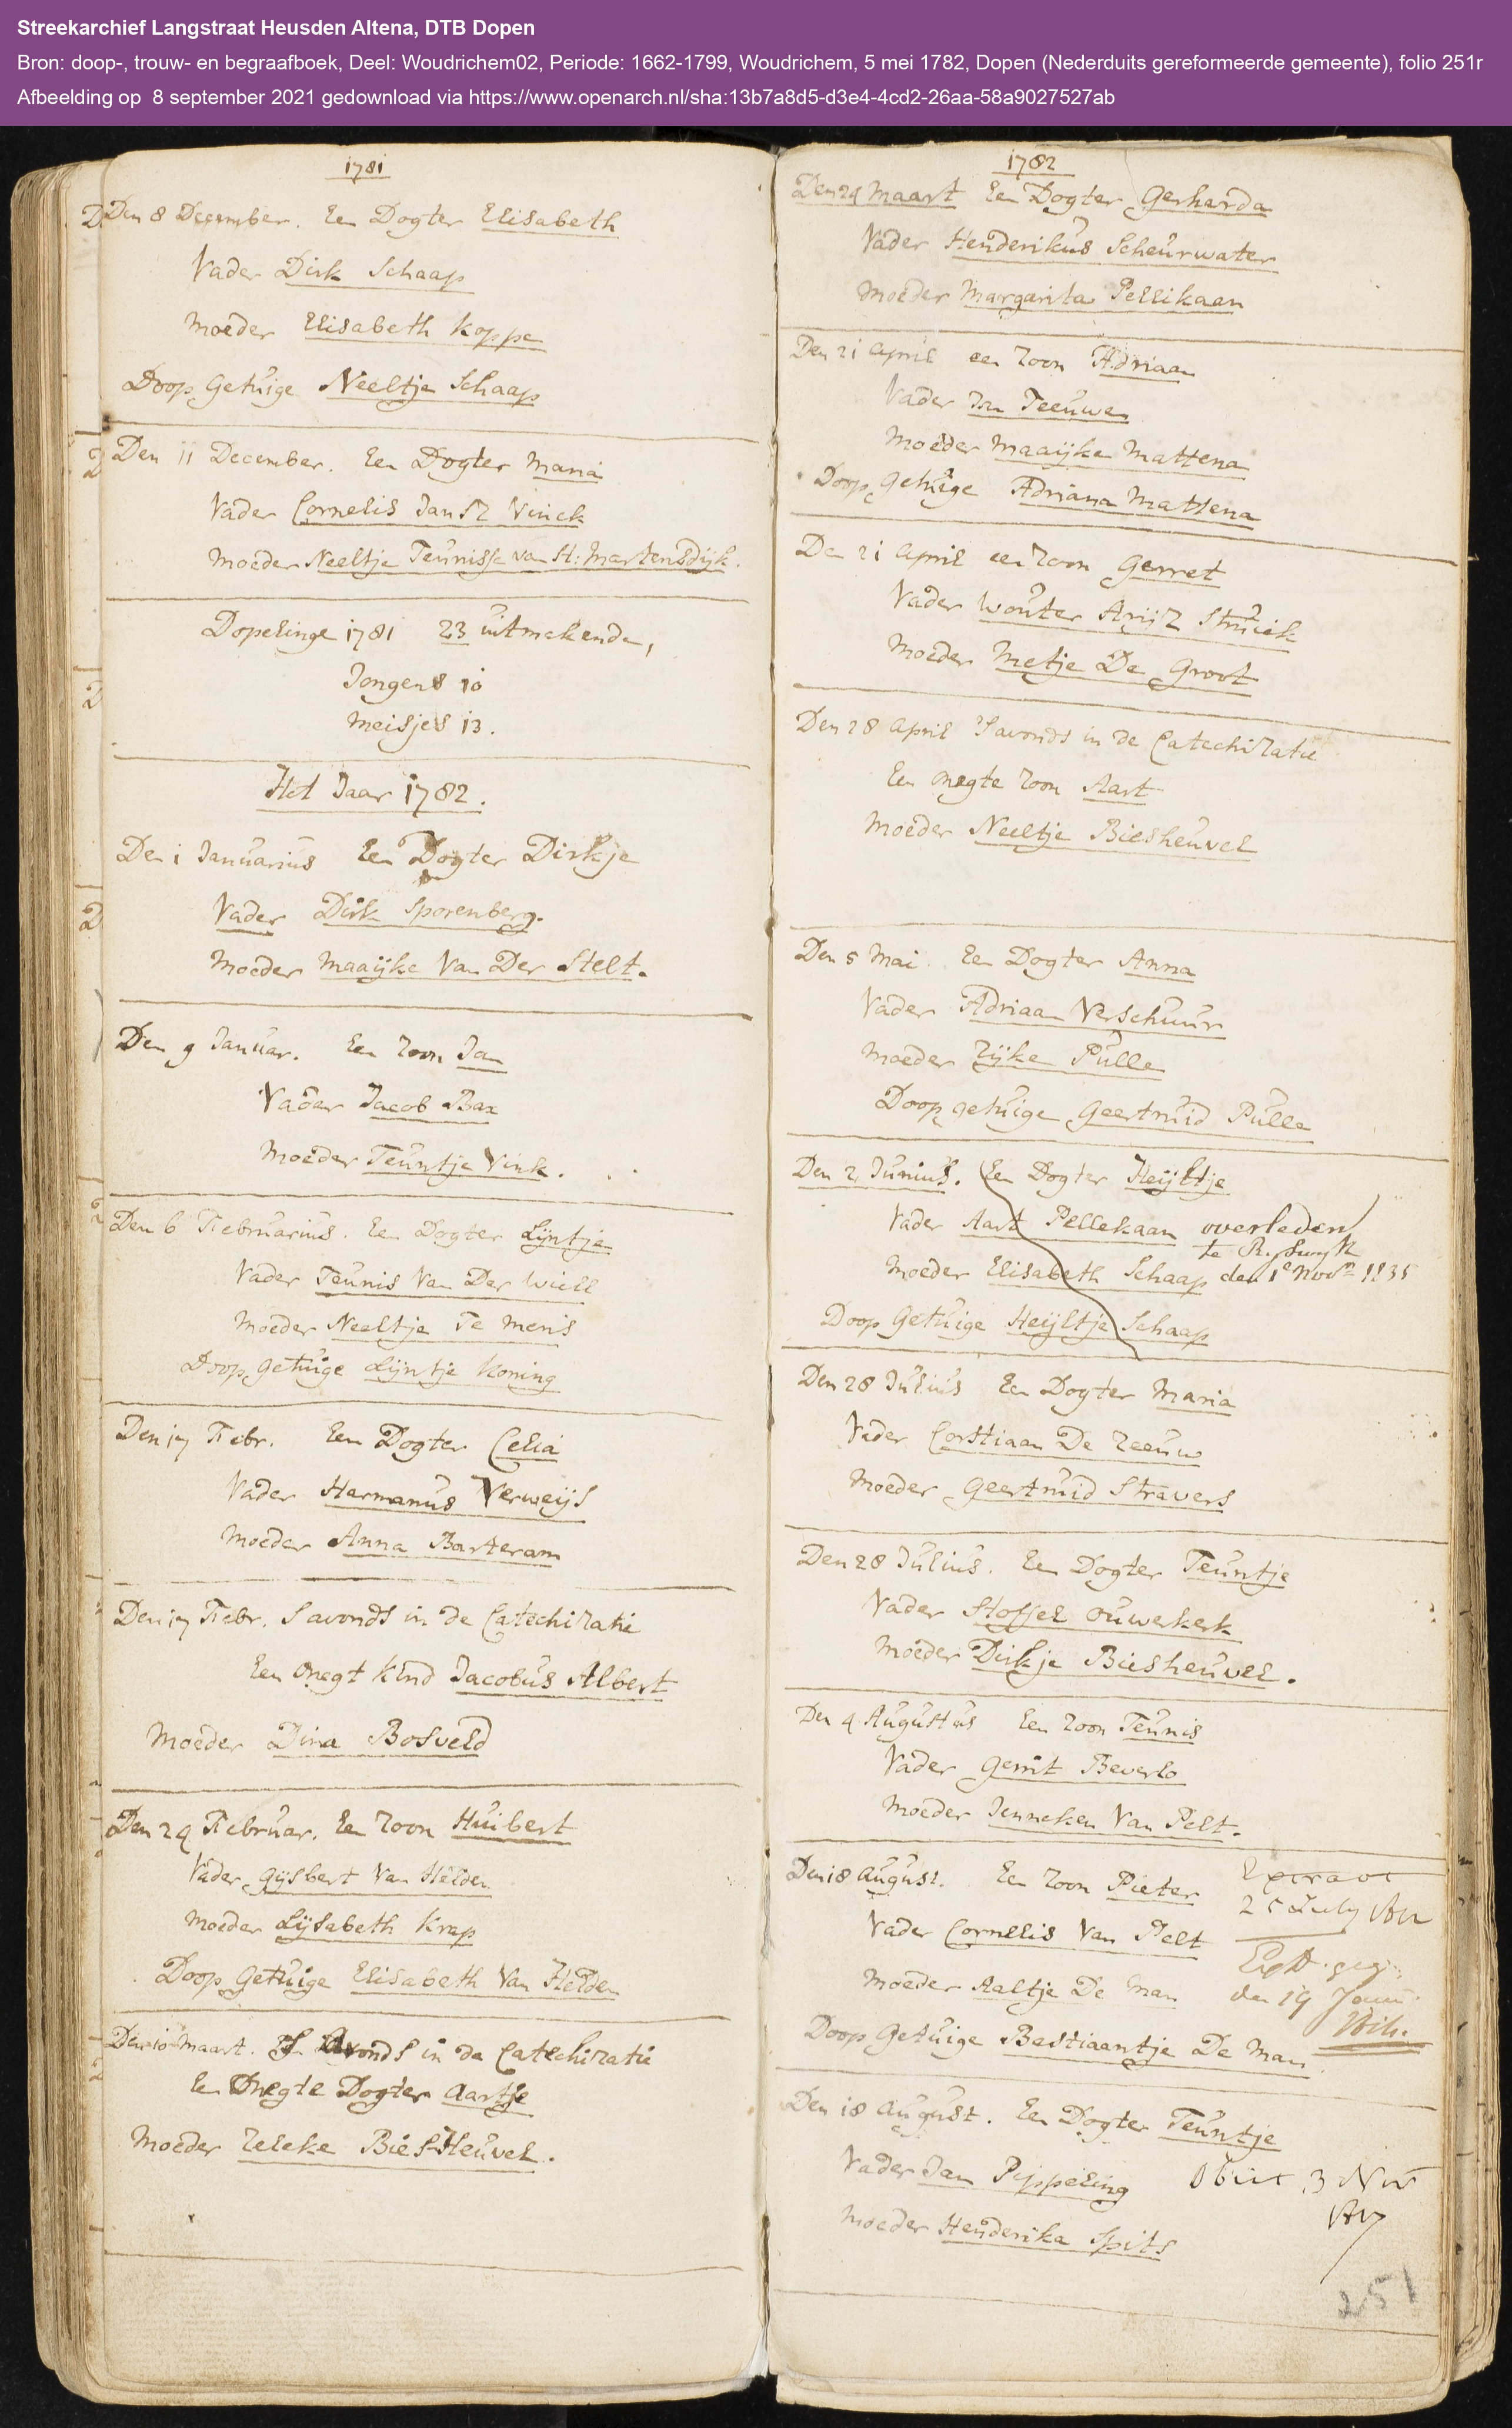 Streekarchief Langstraat Heusden Altena, DTB Dopen
Bron: doop-, trouw- en begraafboek, Deel: Woudrichem02, Periode: 1662-1799, Woudrichem, 5 mei 1782, Dopen (Nederduits gereformeerde gemeente), folio 251r
Afbeelding op 8 september 2021 gedownload via https://www.openarch.nl/sha:13b7a8d5-d3e4-4cd2-26aa-58a9027527ab
1781
Den 8 December. Een Dogter Elisabeth
Vader Dirk Schaap
Moeder Elisabeth Koppe
Doop Getuige Neeltje Schaap
Den 11 December. Een Dogter Maria
Vader Cornelis Jansz Vinck
Moeder Neeltje Teunisse van St: Martensdijk.
Dopelinge 1781 23 uitmakende,
Jongens 10
Meisjes 13.
Het Jaar 1782.
Den 1 Januarius Een Dogter Dirkje
Vader Dirk Sporenberg.
Moeder Maaijke Van Der Stelt.
Den 9 Januar. Een Zoon Jan
Vader Jacob Bax
Moeder Teuntje Vink.
Den 6 Februarius. Een Dogter Lijntje
Vader Teunis Van Der Wiell
Moeder Neeltje Te Mens
Doop Getuige Lijntje Koning
Den 17 Febr. Een Dogter Celia
Vader Harmanus Verweijs
Moeder Anna Barteram
Den 17 Febr. Savonds in de Catechizatie
Een Onegt Kind Jacobus Albert
Moeder Dina Bosveld
Den 24 Februar. Een Zoon Huibert
Vader Gijsbert Van Helden
Moeder Lijsabeth Krap
Doop Getuige Elisabeth Van Helden
Den 10 Maart. S Avonds in de Catechizatie
Een Onegte Dogter Aartje
Moeder Zeleke BiesHeuvel.
1782
Den 24 Maart Een Dogter Gerharda
Vader Henderikus Scheurwater
Moeder Margarita Pellikaan
Den 21 April een Zoon Adriaan
Vader Jan Teeuwen
Moeder Maaijke Mattena
Doop Getuige Adriana Mattena
Den 21 April een Zoon Gerret
Vader Wouter Arijz Struick
Moeder Metje De Groot
Den 28 April Savonds in de Catechizatie
Een onegte Zoon Aart
Moeder Neeltje Biesheuvel
Den 5 Mai. Een Dogter Anna
Vader Adriaan Verschuur
Moeder Zijke Pulle
Doop getuige Geertruid Pulle
Den 2 Junius. Een Dogter Heijltje
Vader Aart Pellekaan overleden
te
Moeder Elisabeth Schaap den 1e Novr 1835
Doop Getuige Heijltje Schaap
Den 28 Julius Een Dogter Maria
Vader Corstiaan De Zeeuw
Moeder Geertruid Stravers
Den 28 Julius. Een Dogter Teuntje
Vader Stoffel Ouwekerk
Moeder Dirkje Biesheuvel.
Den 4 Augustus Een Zoon Teunis
Vader Gerrit Beverlo
Moeder Jenneken Van Pelt.
Den 18 August. Een Zoon Pieter
Vader Cornelis Van Pelt
Moeder Aaltje De Man
Doop Getuige Bastiaantje De Man
Extract
25 July
den 19
Den 18 August. Een Dogter Teuntje
Vader Jan Pippeling Obiit 3 Nov
Moeder Henderika Spits
251